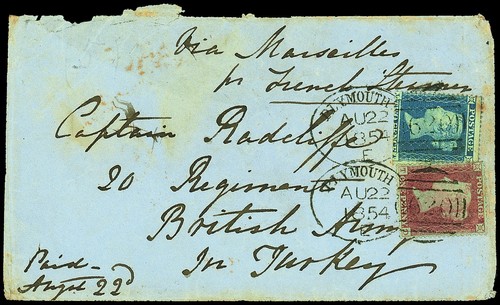 Via Marseilles
pr French Steamer
Captain Radcliffe
20 Regiment
British Army
In Turkey
Paid
Augst 22d
PLYMOUTH
AU 22
1854
POSTAGE
PLYMOUTH
AU 22
1854
POSTAGE